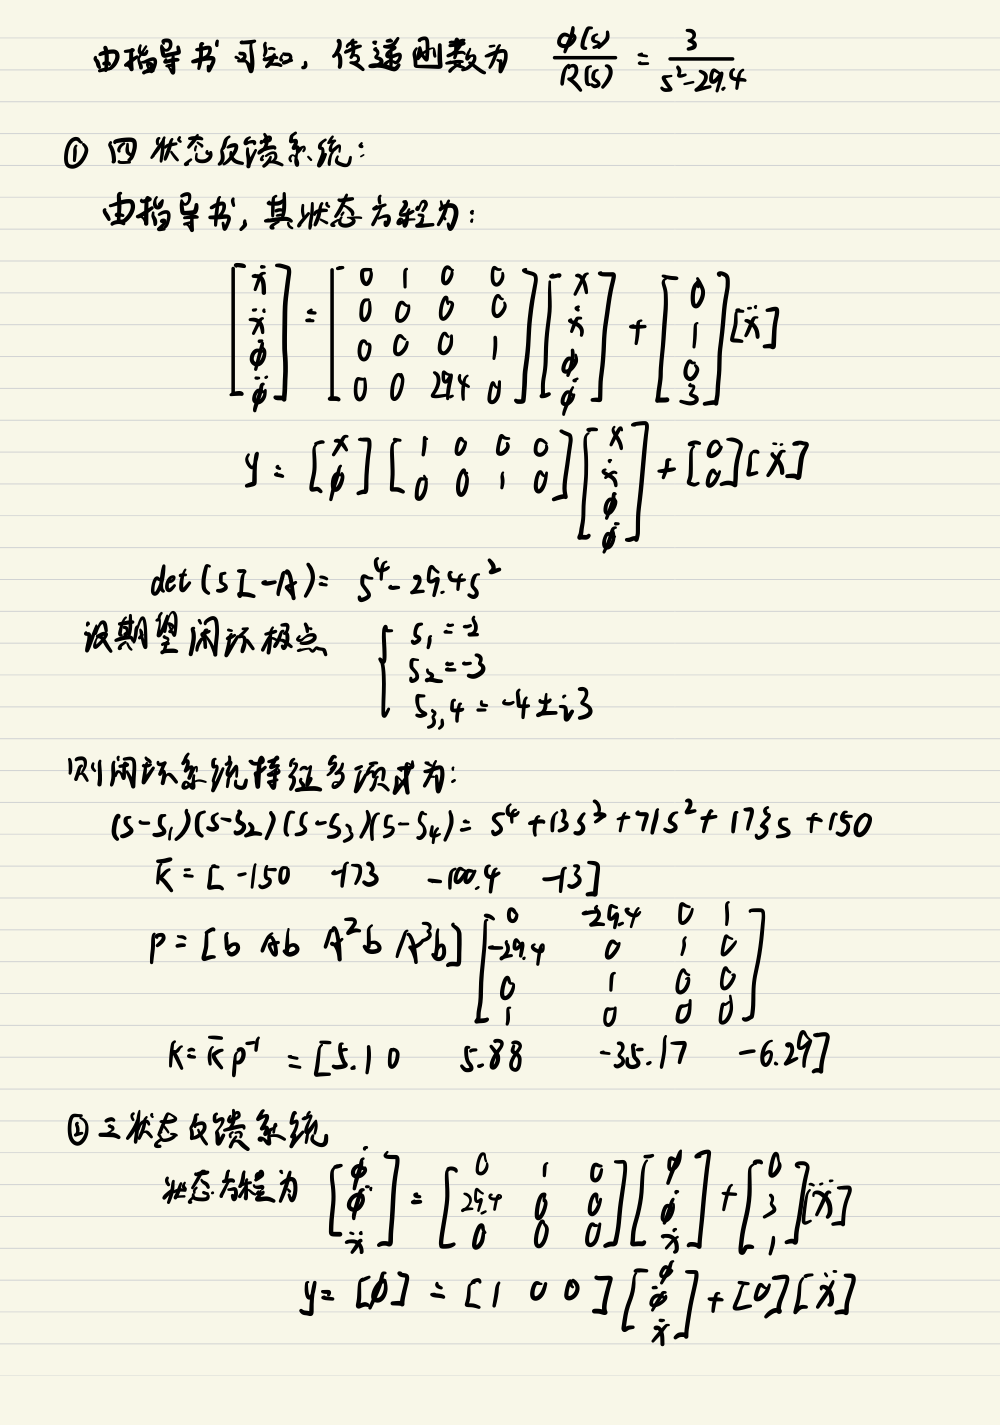 由指导书可知，传递函数为 φ(s)/R(s) = 3/(s²-29.4)
① 四状态反馈系统：
由指导书，其状态方程为：
[ẋ; ẍ; φ̇; φ̈] = [0 1 0 0; 0 0 0 0; 0 0 0 1; 0 0 29.4 0] [x; ẋ; φ; φ̇] + [0; 1; 0; 3] [ẍ]
y = [x; φ] [1 0 0 0; 0 0 1 0] [x; ẋ; φ; φ̇] + [0; 0] [ẍ]
det(sI-A) = s⁴-29.4s²
设期望闭环极点 { s₁ = -2
s₂ = -3
s₃,₄ = -4±i3
则闭环系统特征多项式为：
(s-s₁)(s-s₂)(s-s₃)(s-s₄) = s⁴+13s³+71s²+173s+150
k̄ = [-150 -173 -100.4 -13]
P = [b Ab A²b A³b] [0 -29.4 0 1; -29.4 0 1 0; 0 1 0 0; 1 0 0 0]
K = k̄ P⁻¹ = [5.10 5.88 -35.17 -6.29]
② 三状态反馈系统
状态方程为 [φ̇; φ̈; ẍ] = [0 1 0; 29.4 0 0; 0 0 0] [φ; φ̇; ẋ] + [0; 3; 1] [ẍ]
y = [φ] = [1 0 0] [φ; φ̇; ẋ] + [0] [ẍ]